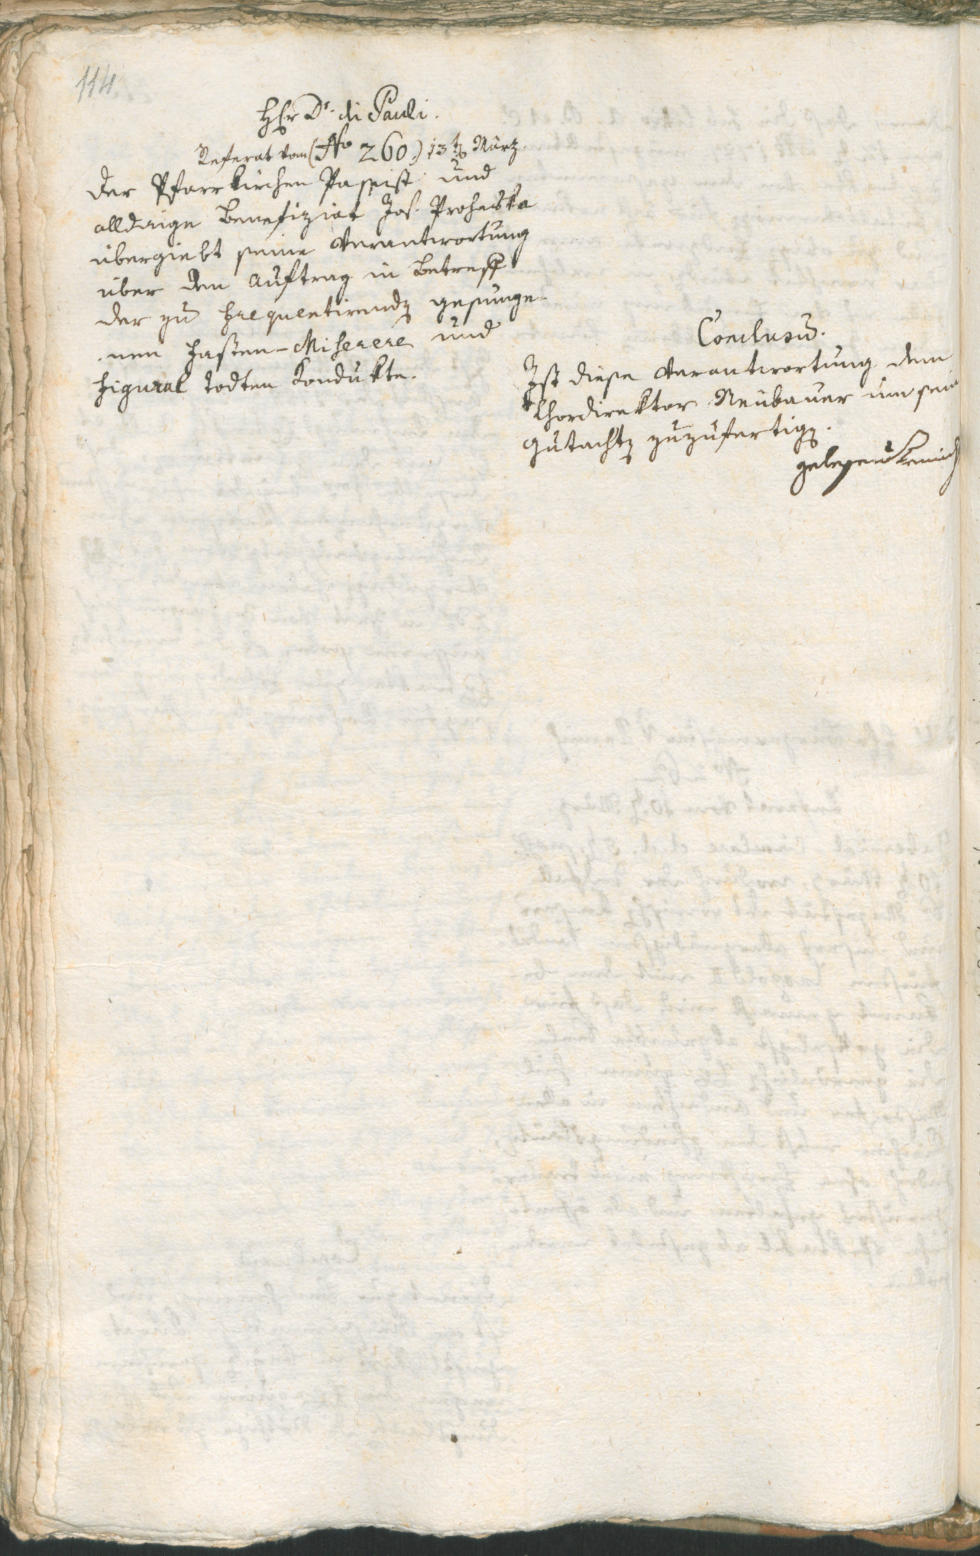 114.
Hr Dr. di Pauli.
Referat vom (No 260.) 13ten März.
Der Pfarrkirchen Bassist und
alldaige Benefiziat Jos. Prohaska
übergiebt seine Verantwortung
über den Auftrag in Betreff
der zu frequentirenden gesunge-
nen Fasten-Miserere und
Figural todten Kondukte.
Conclusum.
Ist diese Verantwortung dem
Chordirektor Neubauer um sein
Gutachten zuzufertigen.
gelesen